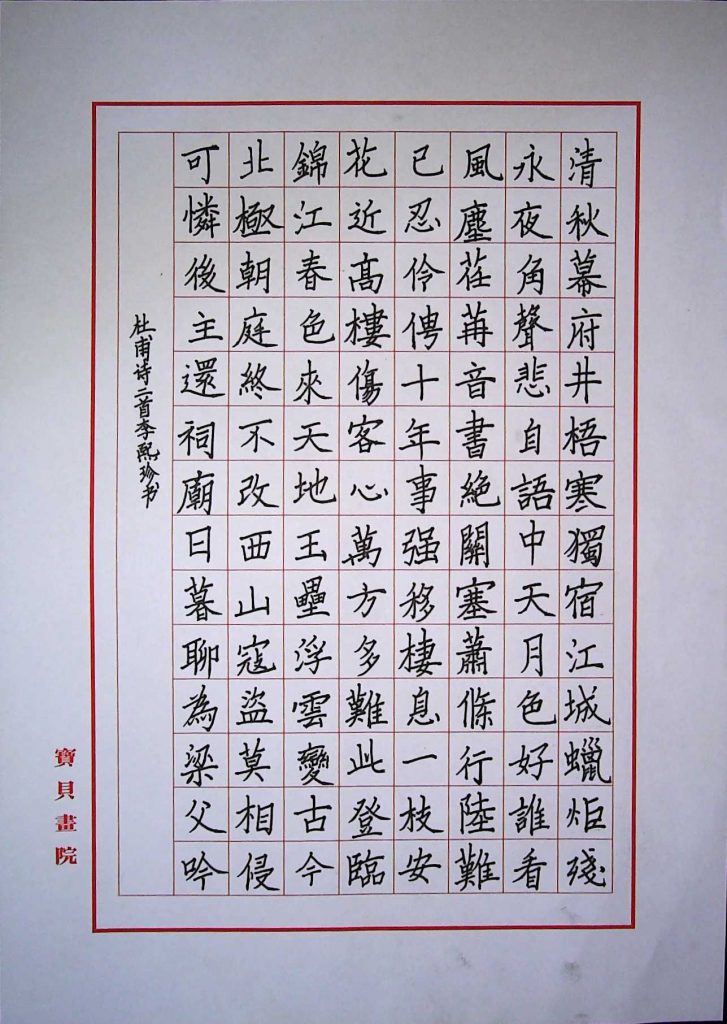 清秋幕府井梧寒獨宿江城蠟炬殘
永夜角聲悲自語中天月色好誰看
風塵荏苒音書絶關塞蕭條行陸難
已忍伶俜十年事强移棲息一枝安
花近高樓傷客心萬方多難此登臨
錦江春色來天地玉壘浮雲變古今
北極朝庭終不改西山寇盜莫相侵
可憐後主還祠廟日暮聊為梁父吟
杜甫诗二首李熙珍书
寶貝畫院